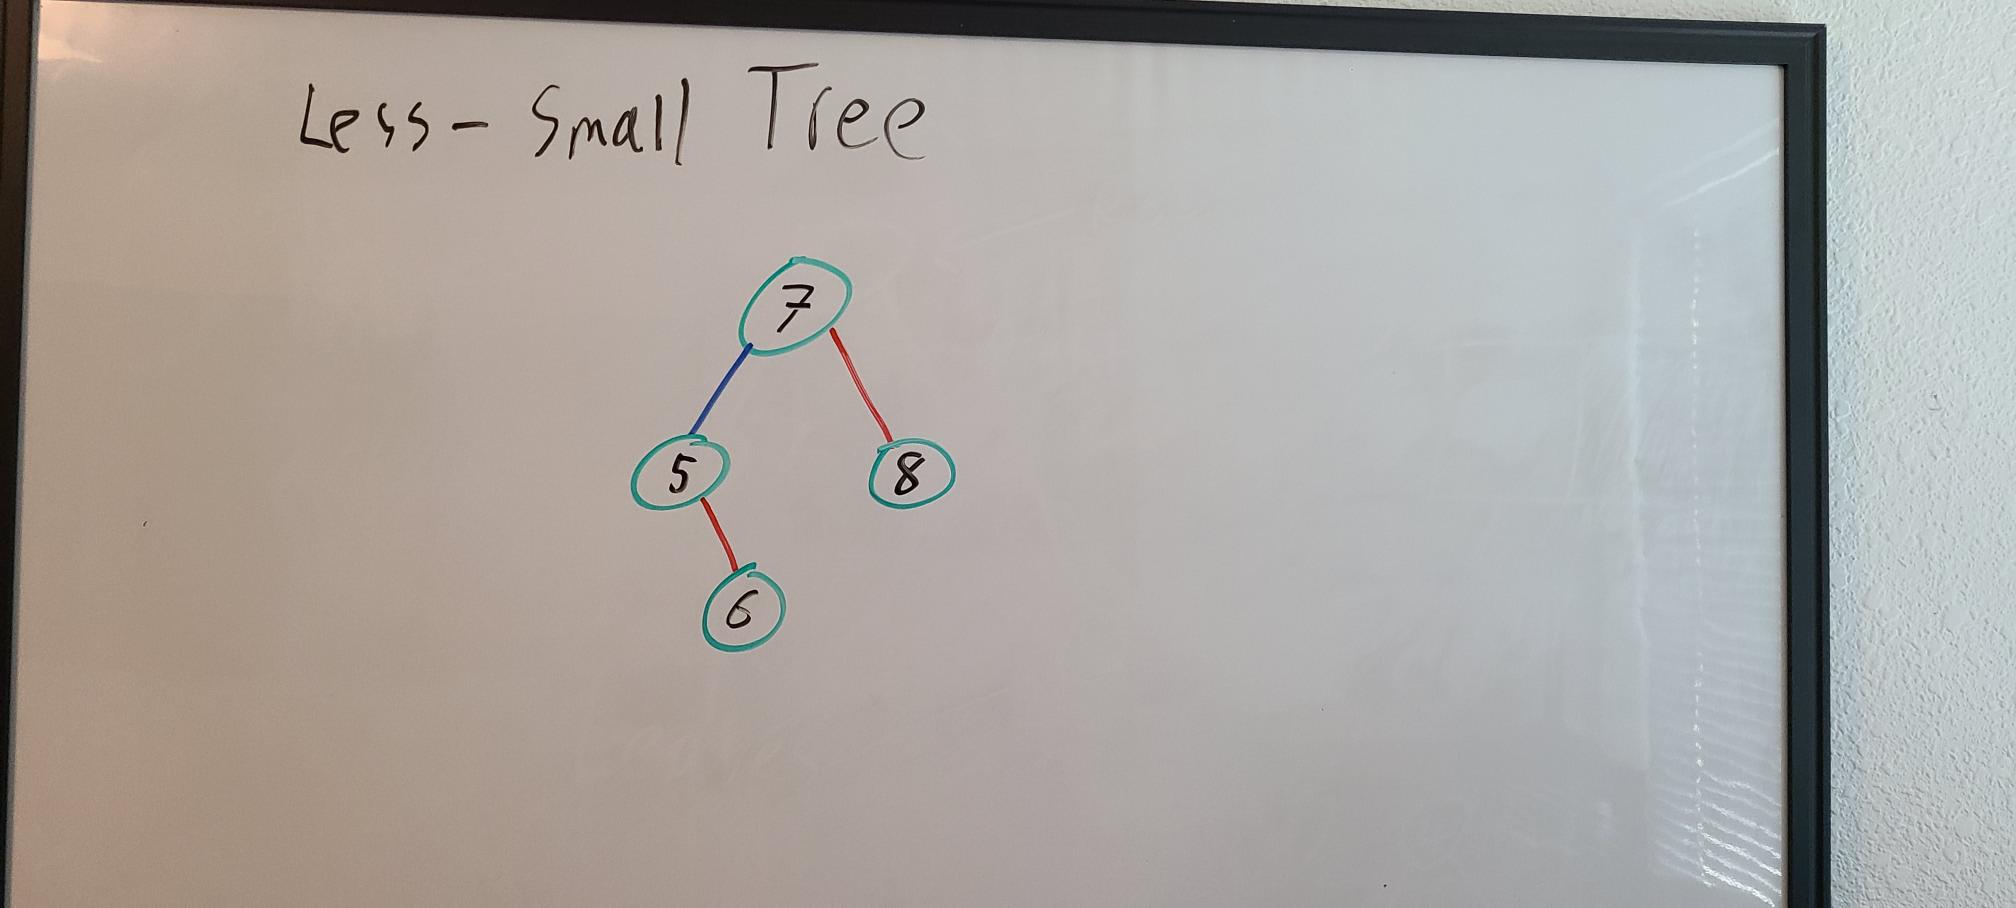 Less-Small Tree
7
5 8
6